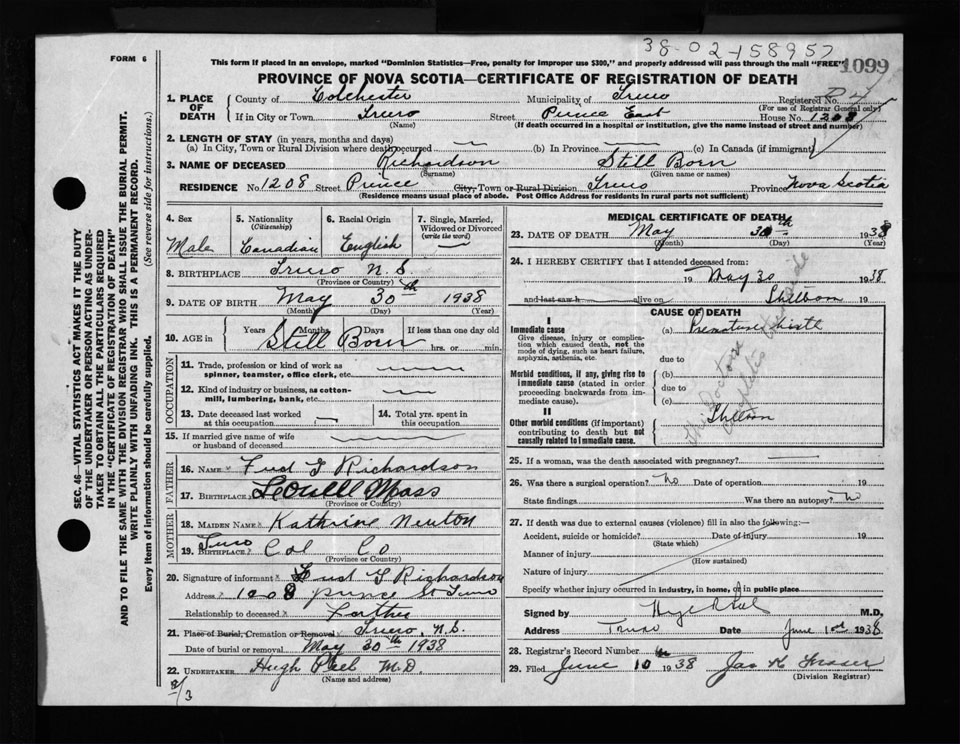 38-02-158957
FORM 6
This form if placed in an envelope, marked "Dominion Statistics—Free, penalty for improper use $300," and properly addressed will pass through the mail "FREE"
1099
PROVINCE OF NOVA SCOTIA—CERTIFICATE OF REGISTRATION OF DEATH
1. PLACE OF DEATH
County of Colchester Municipality of Truro Registered No.
(For use of Registrar General only)
If in City or Town Truro Street Prince East House No. 1208
(Name) (If death occurred in a hospital or institution, give the name instead of street and number)
2. LENGTH OF STAY (in years, months and days)
(a) In City, Town or Rural Division where death occurred (b) In Province (c) In Canada (if immigrant)
3. NAME OF DECEASED Richardson Still Born
(Surname) (Given name or names)
RESIDENCE No. 1208 Street Prince City, Town or Rural Division Truro Province Nova Scotia
(Residence means usual place of abode. Post Office Address for residents in rural parts not sufficient)
4. Sex
Male
5. Nationality (Citizenship)
Canadian
6. Racial Origin
English
7. Single, Married, Widowed or Divorced (write the word)
8. BIRTHPLACE Truro N.S.
(Province or Country)
9. DATE OF BIRTH May 30th 1938
(Month) (Day) (Year)
10. AGE in Years Months Days If less than one day old
Still Born hrs. or min.
OCCUPATION
11. Trade, profession or kind of work as spinner, teamster, office clerk, etc.
12. Kind of industry or business, as cotton-mill, lumbering, bank, etc.
13. Date deceased last worked at this occupation
14. Total yrs. spent in this occupation
15. If married give name of wife or husband of deceased
FATHER
16. NAME Fred G Richardson
17. BIRTHPLACE Mass
(Province or Country)
MOTHER
18. MAIDEN NAME Kathrine Newton
19. BIRTHPLACE Truro Col Co
(Province or Country)
20. Signature of informant Fred G Richardson
Address 1208 Prince St Truro
Relationship to deceased Father
21. Place of Burial, Cremation or Removal Truro, N.S.
Date of burial or removal May 30th 1938
22. UNDERTAKER Hugh M.D.
(Name and address)
MEDICAL CERTIFICATE OF DEATH
23. DATE OF DEATH May 30th 1938
(Month) (Day) (Year)
24. I HEREBY CERTIFY that I attended deceased from:
19 May 30 1938
and last saw h alive on Stillborn 19
CAUSE OF DEATH
I
Immediate cause
Give disease, injury or complication which caused death, not the mode of dying, such as heart failure, asphyxia, asthenia, etc.
(a) Premature birth
due to
Morbid conditions, if any, giving rise to immediate cause (stated in order proceeding backwards from immediate cause).
(b)
due to
(c)
II
Other morbid conditions (if important) contributing to death but not causally related to immediate cause.
Stillborn
25. If a woman, was the death associated with pregnancy?
26. Was there a surgical operation? No Date of operation 19
State findings Was there an autopsy? No
27. If death was due to external causes (violence) fill in also the following:—
Accident, suicide or homicide? Date of injury 19
(State which)
Manner of injury
(How sustained)
Nature of injury
Specify whether injury occurred in industry, in home, or in public place
Signed by M.D.
Address Truro Date June 1st 1938
28. Registrar's Record Number
29. Filed June 10 1938 Jas Fraser
(Division Registrar)
SEC. 46—VITAL STATISTICS ACT MAKES IT THE DUTY
OF THE UNDERTAKER OR PERSON ACTING AS UNDER-
TAKER TO OBTAIN ALL THE PARTICULARS REQUIRED
IN THE "CERTIFICATE OF REGISTRATION OF DEATH"
AND TO FILE THE SAME WITH THE DIVISION REGISTRAR WHO SHALL ISSUE THE BURIAL PERMIT.
WRITE PLAINLY WITH UNFADING INK. THIS IS A PERMANENT RECORD.
Every item of information should be carefully supplied. (See reverse side for instructions.)